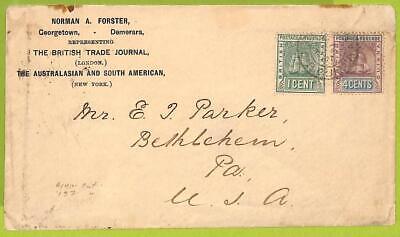 NORMAN A. FORSTER,
Georgetown, - Demerara,
REPRESENTING
THE BRITISH TRADE JOURNAL,
(LONDON.)
THE AUSTRALASIAN AND SOUTH AMERICAN,
(NEW YORK.)
POSTAGE & REVENUE
1 CENT
POSTAGE & REVENUE
4 CENTS
Mr. E. J. Parker,
Bethlehem
Pa.
U.S.A